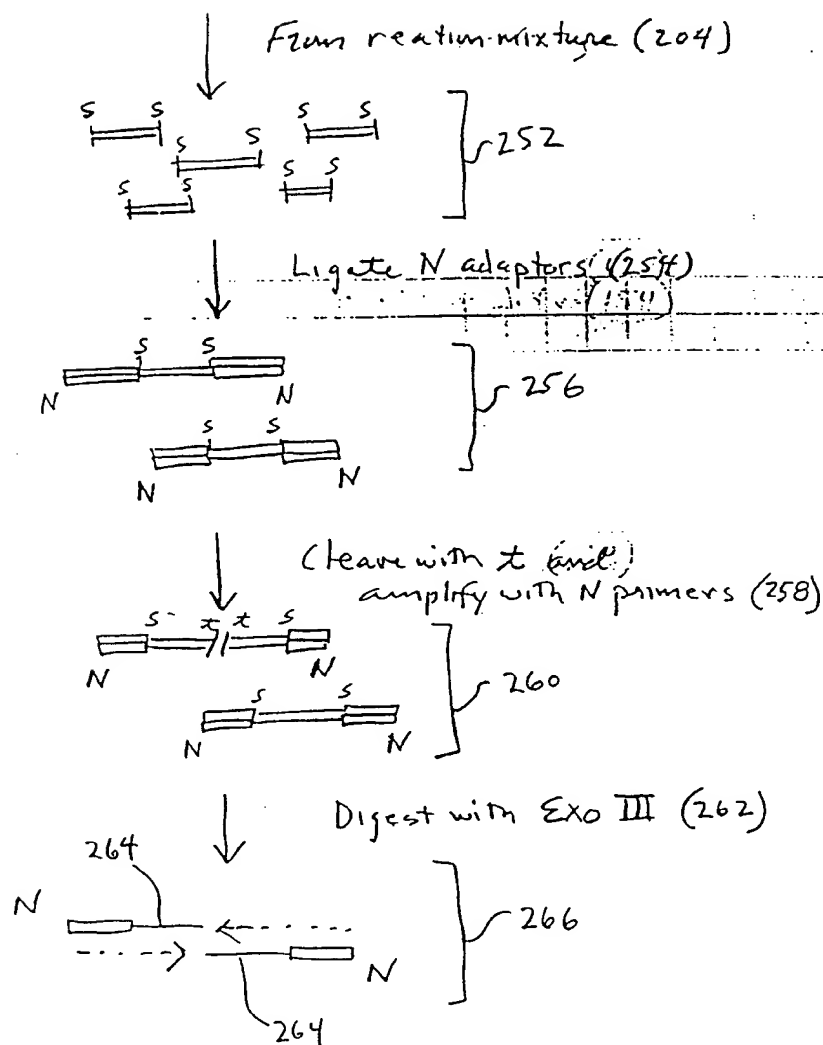 From reation mixture (204)
S S S S
S S
S S
252
Ligate N adaptors (254)
S S
N N
256
S S
N N
Cleave with t and
amplify with N primers (258)
S t t S
N N
S S
260
N N
Digest with Exo III (262)
264
N
266
N
264